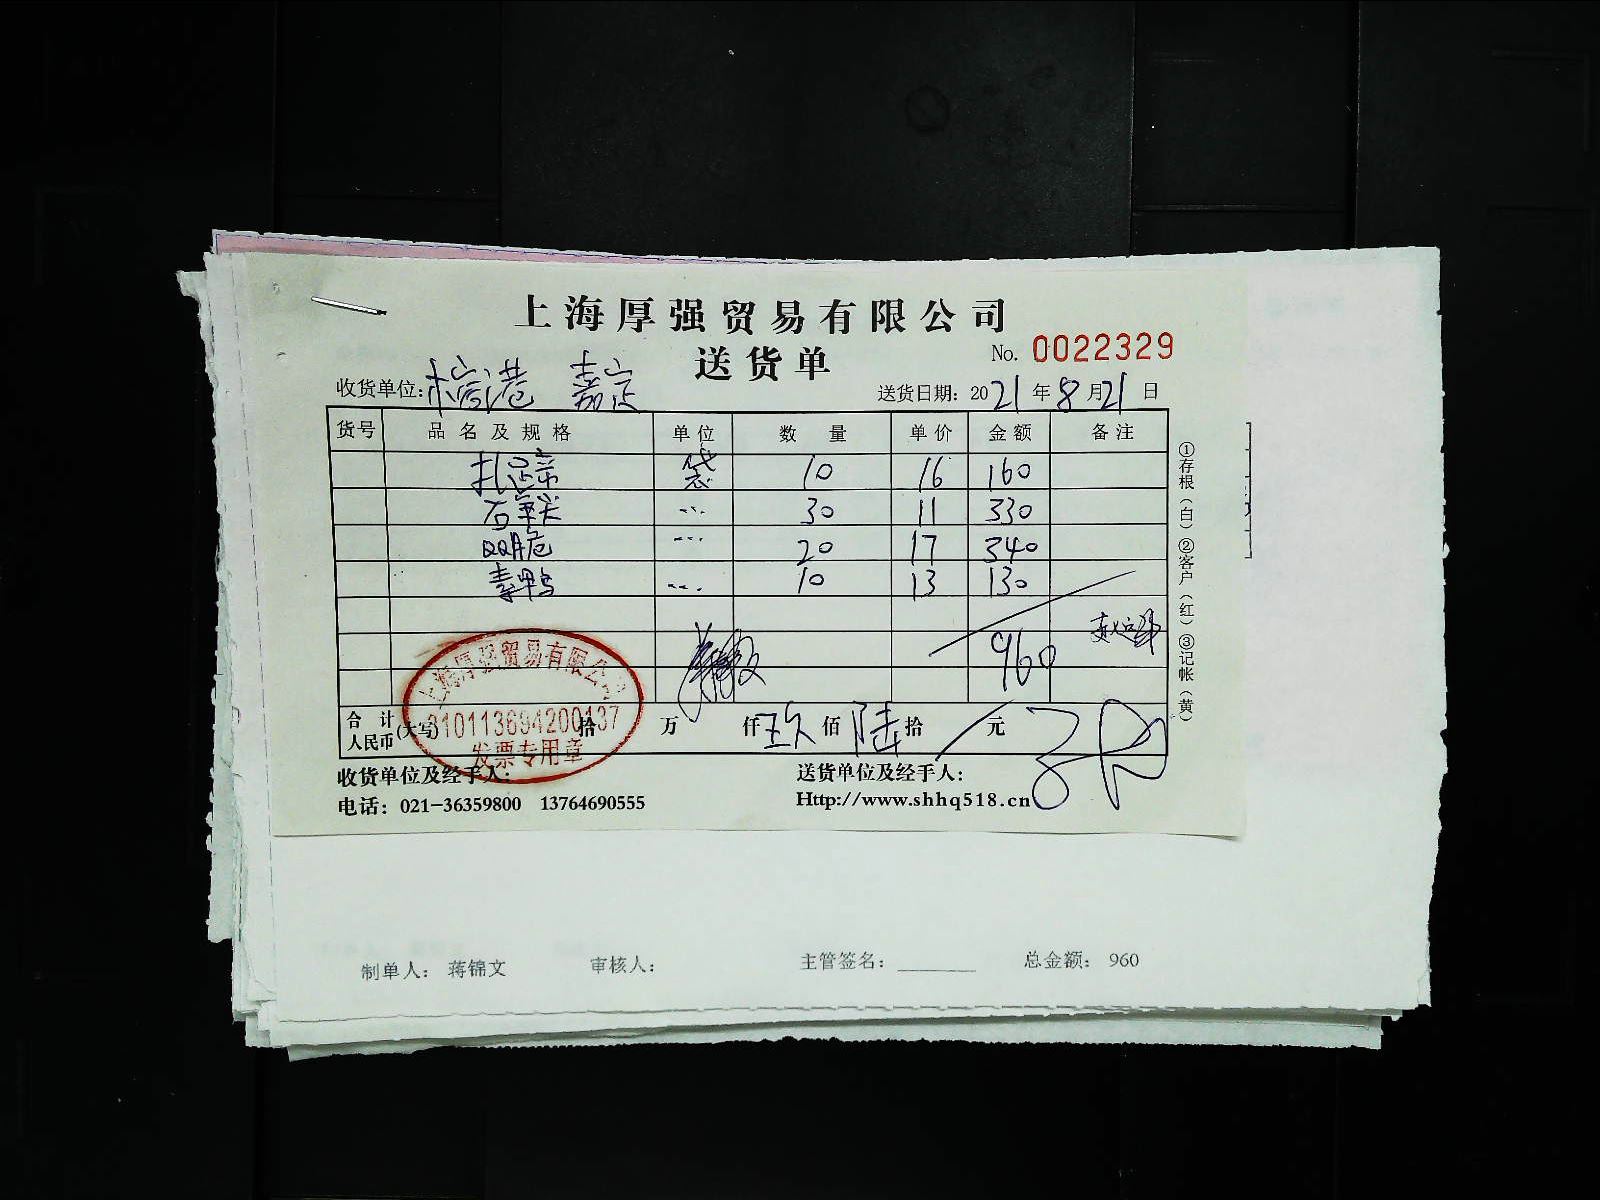 上海厚强贸易有限公司
送货单
No. 0022329
收货单位: 檎港 嘉定
送货日期: 2021年8月21日
货号 品名及规格 单位 数量 单价 金额 备注
扎蹄 袋 10 16 160
30 11 330
20 17 340
素鸭 10 13 130
960
合计人民币(大写) 拾 万 仟 玖 佰 陆 拾 元
上海厚强贸易有限公司
310113694200137
发票专用章
收货单位及经手人:
送货单位及经手人:
电话: 021-36359800 13764690555
Http://www.shhq518.cn
①存根(白)②客户(红)③记帐(黄)
制单人: 蒋锦文 审核人: 主管签名: 总金额: 960